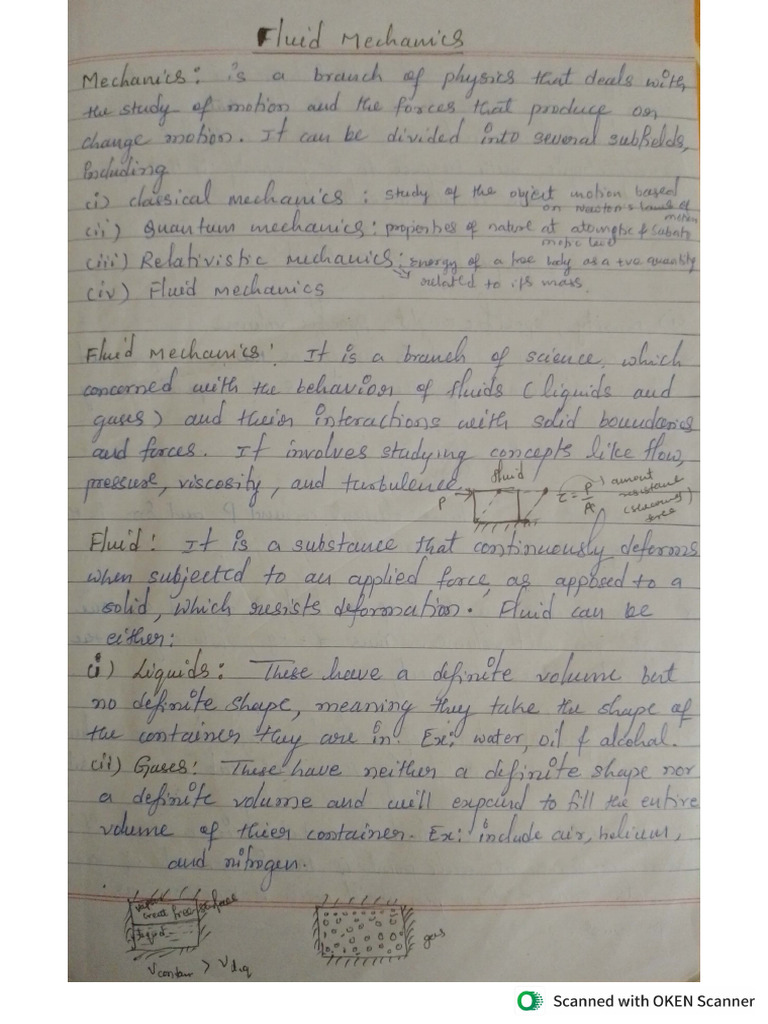 Fluid Mechanics
Mechanics: is a branch of physics that deals with
the study of motion and the forces that produce or
change motion. It can be divided into several subfields,
Including
(i) classical mechanics : study of the object motion based
on Newton's laws of
motion
(ii) Quantum mechanics : properties of nature at atomic & subato
mic level
(iii) Relativistic mechanics : energy of a free body as a +ve quantity
related to its mass.
(iv) Fluid mechanics
Fluid Mechanics: It is a branch of science, which
concerned with the behavior of fluids (liquids and
gases) and their interactions with solid boundaries
and forces. It involves studying concepts like flow,
pressure, viscosity, and turbulence.
fluid
P
τ = P/A
resistance
Fluid: It is a substance that continuously deforms
when subjected to an applied force, as apposed to a
solid, which resists deformation. Fluid can be
either:
(i) Liquids: These have a definite volume but
no definite shape, meaning they take the shape of
the container they are in. Ex: water, oil & alcohal.
(ii) Gases: These have neither a definite shape nor
a definite volume and will expand to fill the entire
volume of thier container. Ex: include air, helium,
and nitrogen.
vapour
free surfaces
liquid
gas